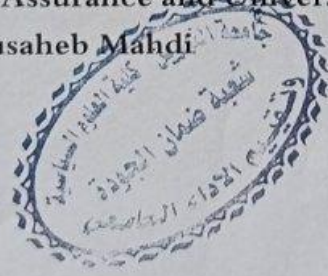 Assurance and Univer
usaheb Mahdi
جامعة النهرين كلية العلوم السياسية
شعبة ضمان الجودة
وتقييم الاداء الجامعي